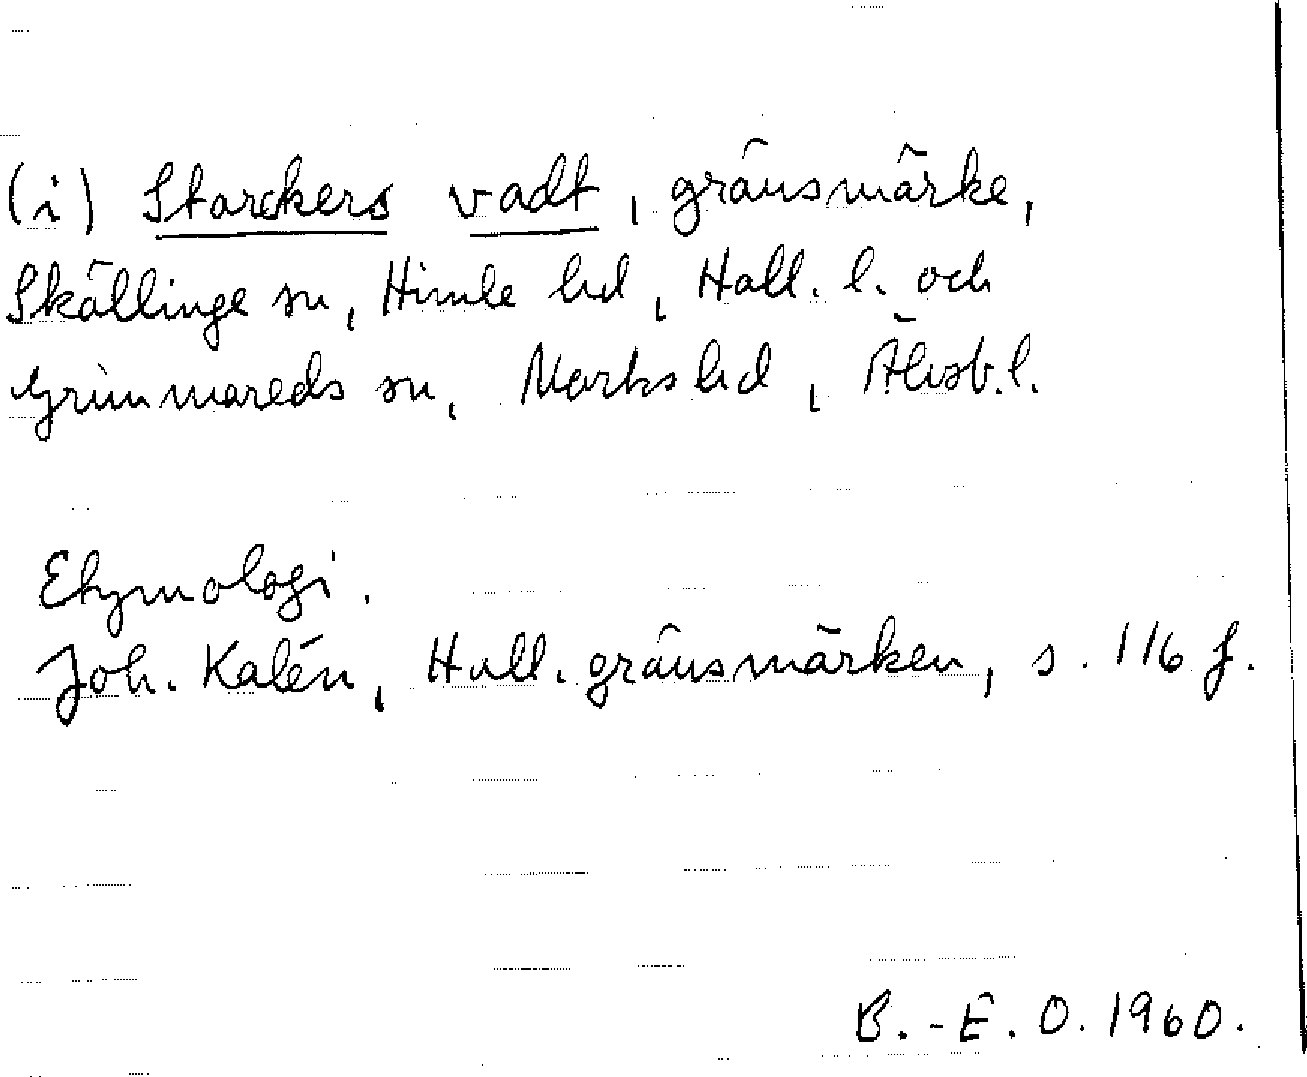 (i) Starckers vadt, gränsmärke,
Skällinge sn, Himle hd, Hall. l. och
Grimmareds sn, Marks hd, Älvsb. l.
Etymologi.
Joh. Kalén, Hall. gränsmärken, s. 116 f.
B.-E. O. 1960.